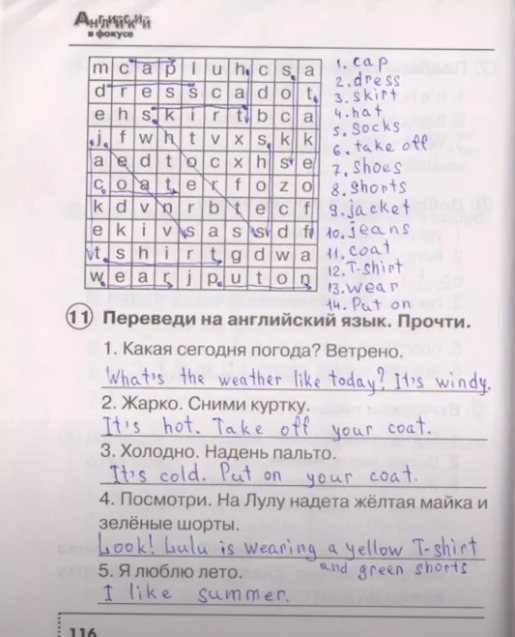 Английский
в фокусе
m c a p l u h c s a 1. cap
d r e s s c a d o t 2. dress
e h s k i r t b c a 3. skirt
j f w h t v x s k k 4. hat
a e d t o c x h s e 5. socks
c o a t e r f o z o 6. take off
k d v n r b t e c f 7. shoes
e k i v s a s s d f 8. shorts
t s h i r t g d w a 9. jacket
w e a r j p u t o n 10. jeans
11. coat
12. T-shirt
13. wear
14. Put on
11 Переведи на английский язык. Прочти.
1. Какая сегодня погода? Ветрено.
What's the weather like today? It's windy.
2. Жарко. Сними куртку.
It's hot. Take off your coat.
3. Холодно. Надень пальто.
It's cold. Put on your coat.
4. Посмотри. На Лулу надета жёлтая майка и
зелёные шорты.
Look! Lulu is wearing a yellow T-shirt
and green shorts
5. Я люблю лето.
I like summer.
116